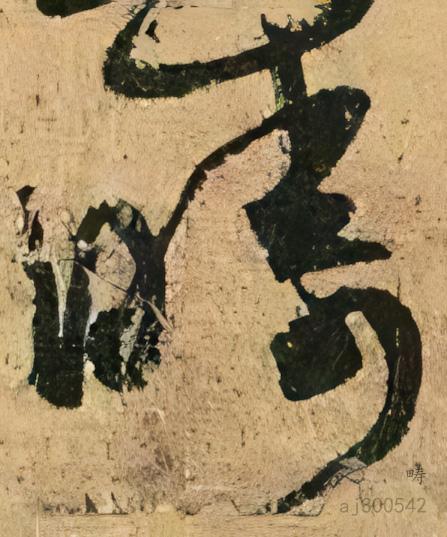 疇
畴
aj800542